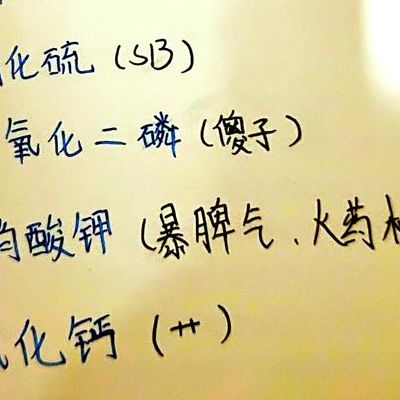 化硫(SB)
氧化二磷(傻子)
酸钾(暴脾气、火药
化钙(艹)